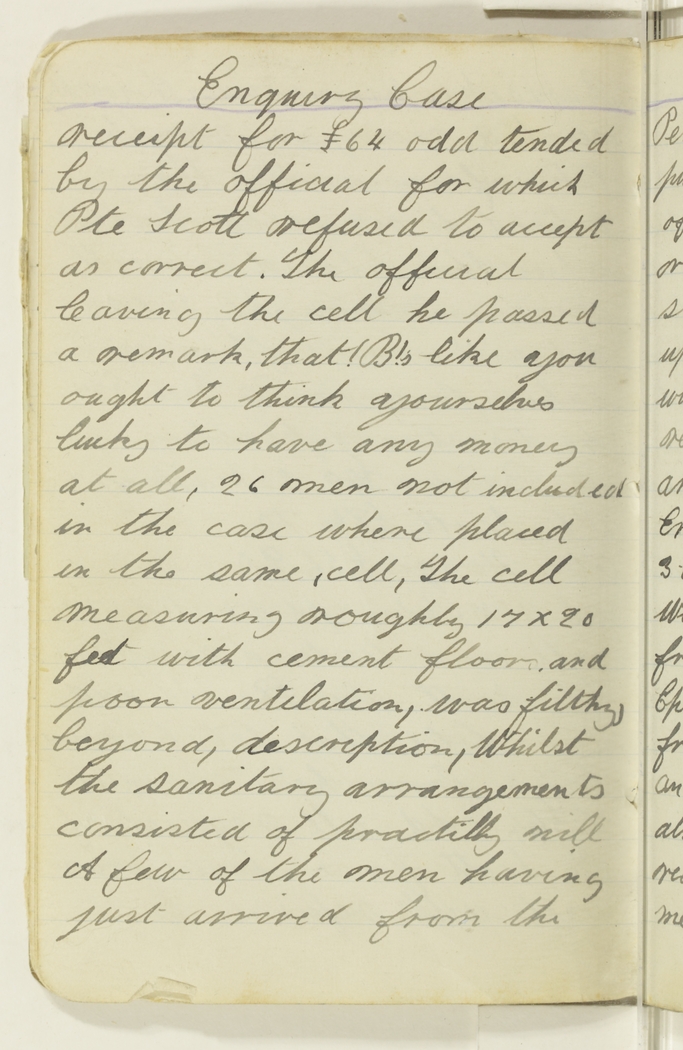 Enquiry Case
receipt for £64 odd tended
by the official for which
Pte Scott refused to accept
as correct. The official
leaving the cell he passed
a remark, that! B!s like you
ought to think yourselves
lucky to have any money
at all, 26 men not included
in the case where placed
in the same, cell, The cell
measuring roughly 17 x 20
feet with cement floor. and
poor ventilation, was filthy
beyond, description, Whilst
the sanitary arrangements
consisted of practilly nill
A few of the men having
just arrived from the